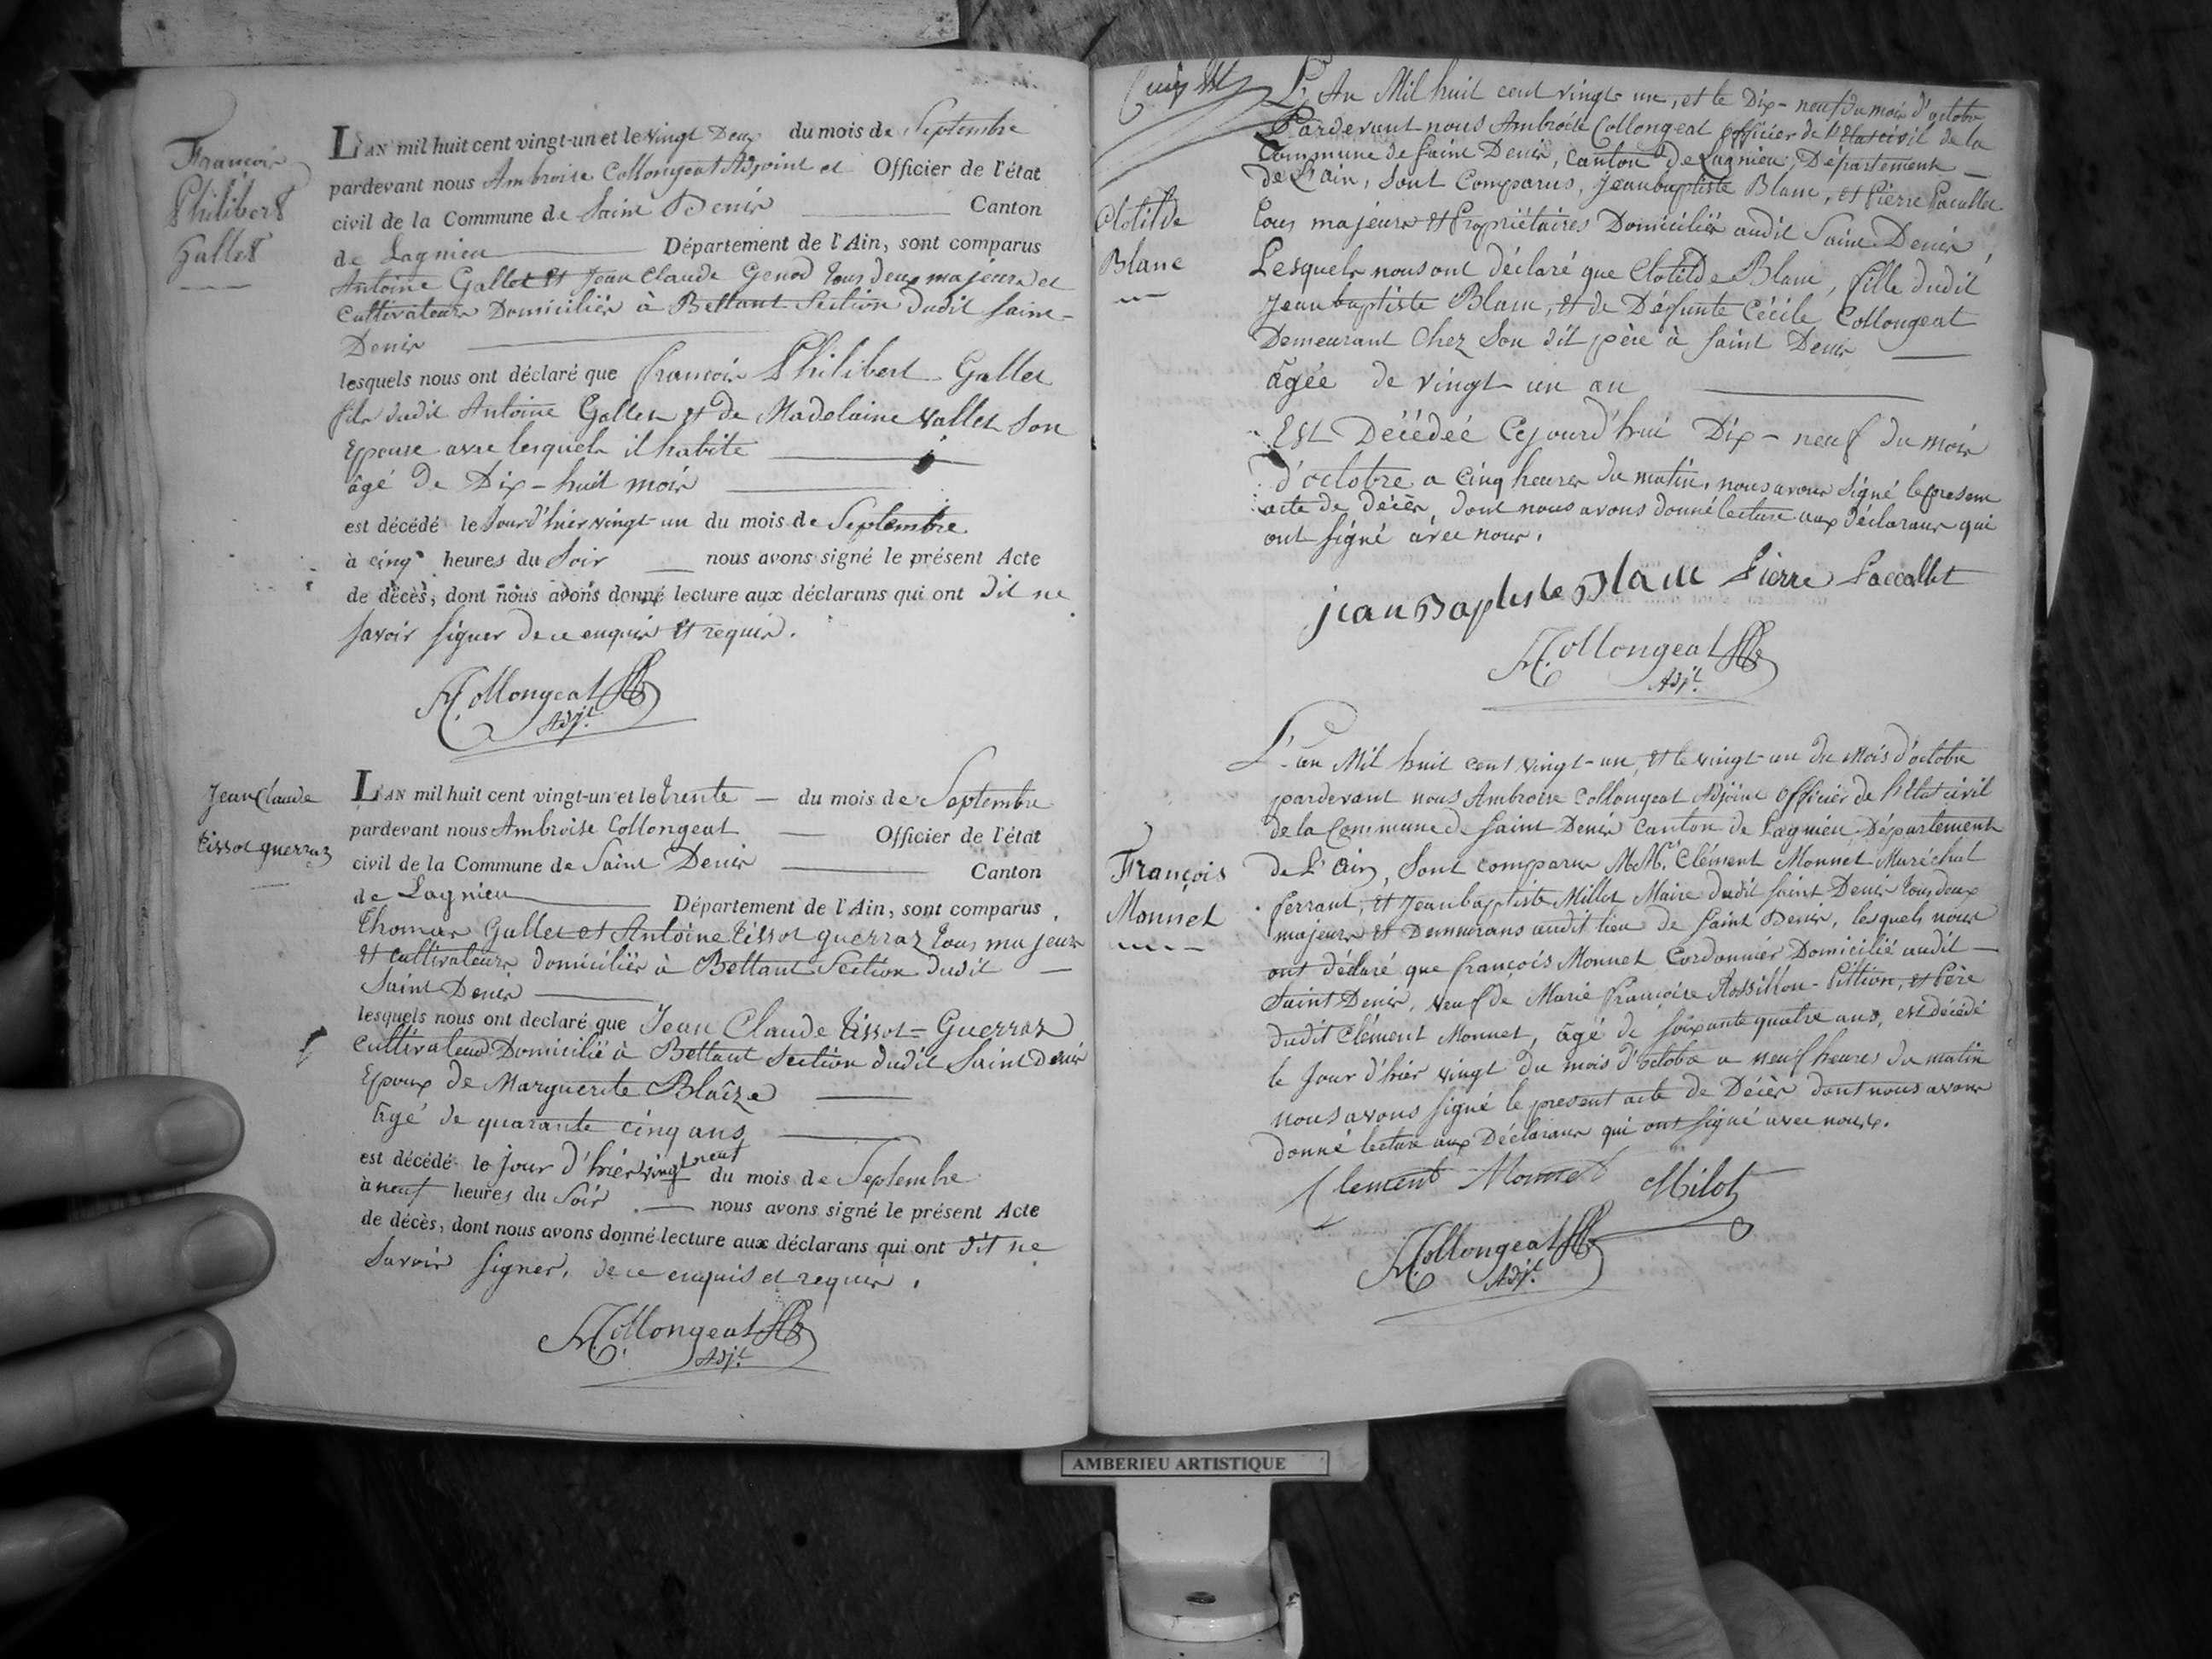 François
Philibert
Gallet
L'AN mil huit cent vingt-un et le vingt Deux du mois de Septembre
pardevant nous Ambroise Collongeat Adjoint et Officier de l'état
civil de la Commune de Saint Denis Canton
de Lagnieu Département de l'Ain, sont comparus
Antoine Gallet et Jean Claude Genod tous deux majeurs et
Cultivateurs Domiciliés à Bettant Section dudit Saint-
Denis
lesquels nous ont déclaré que François Philibert Gallet
fils dudit Antoine Gallet et de Madelaine Vallet Son
Epouse avec lesquels il habite
âgé de Dix-huit mois
est décédé le Jour d'hier vingt-un du mois de Septembre
à cinq heures du Soir nous avons signé le présent Acte
de décès, dont nous avons donné lecture aux déclarans qui ont dit ne
savoir signer de ce enquis et requis.
Collongeat
Adjt.
Jean Claude
tissot guerraz
L'AN mil huit cent vingt-un et le trente du mois de Septembre
pardevant nous Ambroise Collongeat Officier de l'état
civil de la Commune de Saint Denis Canton
de Lagnieu Département de l'Ain, sont comparus
thomas Gallet et Antoine tissot guerraz tous majeurs
et cultivateurs domiciliés à Bettant Section dudit
Saint Denis
lesquels nous ont declaré que Jean Claude tissot-Guerraz
cultivateur Domicilié à Bettant Section dudit Saint Denis
Epoux de Marguerite Blaîze
âgé de quarante cinq ans
est décédé le jour d'hier vingt neuf du mois de Septembre
à neuf heures du Soir nous avons signé le présent Acte
de décès, dont nous avons donné lecture aux déclarans qui ont dit ne
savoir signer, de ce enquis et requis.
Collongeat
Adjt.
L'An Mil huit cent vingt-un, et le Dix-neuf du mois d'octobre
Pardevant nous Ambroise Collongeat officier de l'Etat civil de la
Commune de Saint Denis, Canton de Lagnieu, Département
de L'ain, Sont Comparus, Jean baptiste Blanc, et Pierre Paccallet
tous majeurs et Propriétaires Domiciliés audit Saint Denis,
Clotilde
Blanc
Lesquels nous ont déclaré que Clotilde Blanc, fille dudit
Jean baptiste Blanc, et de Défunte Cécile Collongeat
Demeurant Chez Son dit père à Saint Denis
âgée de vingt un an
Est Décédée Cejourd'hui Dix-neuf du mois
d'octobre a cinq heures du matin, nous avons signé le présent
acte de décès, dont nous avons donné lecture aux déclarans qui
ont signé avec nous.
jean Baptiste Blanc Pierre Paccallet
Collongeat
Adjt.
L'an Mil huit cent vingt-un, et le vingt-un du Mois d'octobre
pardevant nous Ambroise Collongeat Adjoint officier de l'Etat civil
de la Commune de Saint Denis Canton de Lagnieu Département
François
Monnet
de L'Ain, Sont comparus M.Mrs. Clément Monnet Maréchal
ferrant, et Jean baptiste Millet Maire dudit Saint Denis tous deux
majeurs et Demeurans audit lieu de Saint Denis, lesquels nous
ont déclaré que françois Monnet Cordonnier Domicilié audit
Saint Denis, veuf de Marie françoise Rossillon-Pittion, et Père
dudit Clément Monnet, âgé de soixante quatre ans, est décédé
le Jour d'hier vingt du mois d'octobre a neuf heures du matin
nous avons signé le present acte de Décès dont nous avons
donné lecture aux Déclarans qui ont signé avec nous.
Clement Monnet Milot
Collongeat
Adjt.
AMBERIEU ARTISTIQUE